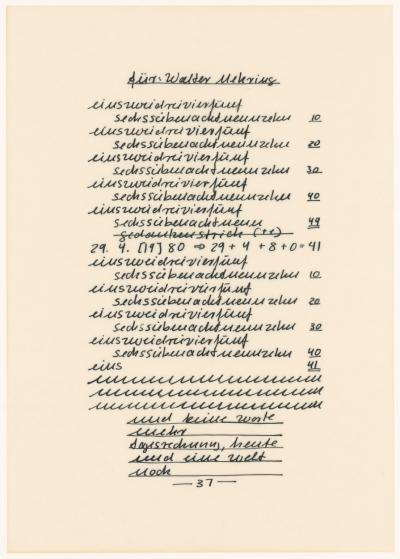 für: Walter Mehring
einszweidreivierfünf
sechssiebenachtneunzehn 10
einszweidreivierfünf
sechssiebenachtneunzehn 20
einszweidreivierfünf
sechssiebenachtneunzehn 30
einszweidreivierfünf
sechssiebenachtneunzehn 40
einszweidreivierfünf
sechssiebenachtneun 49
gedankenstrich
29. 4. [19] 80 ⇒ 29 + 4 + 8 + 0 = 41
einszweidreivierfünf
sechssiebenachtneunzehn 10
einszweidreivierfünf
sechssiebenachtneunzehn 20
einszweidreivierfünf
sechssiebenachtneunzehn 30
einszweidreivierfünf
sechssiebenachtneunzehn 40
eins 41
und keine worte
mehr
tagesrechnung, heute
und eine welt
noch
— 37 —